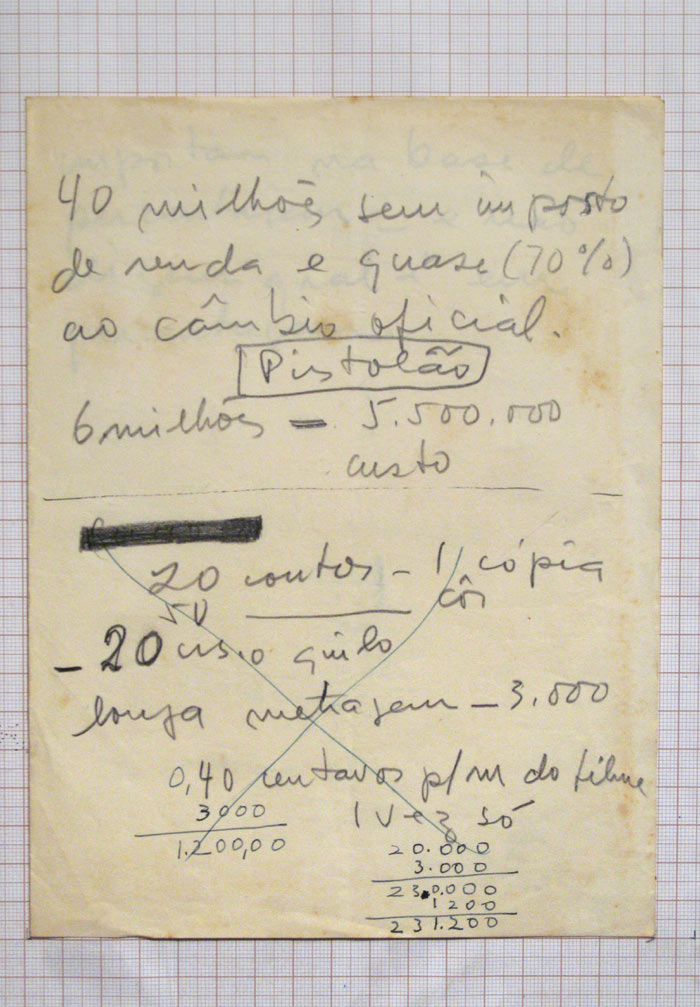 40 milhões sem imposto
de renda e quase (70%)
ao câmbio oficial.
Pistolão
6 milhões = 5.500.000
custo
20 contos - 1 cópia
50 côr
- 20 quilo
longa metragem - 3.000
0,40 centavos p/m do filme
3000 1 vez só
1.200,00
20.000
3.000
23.0.000
1200
231.200